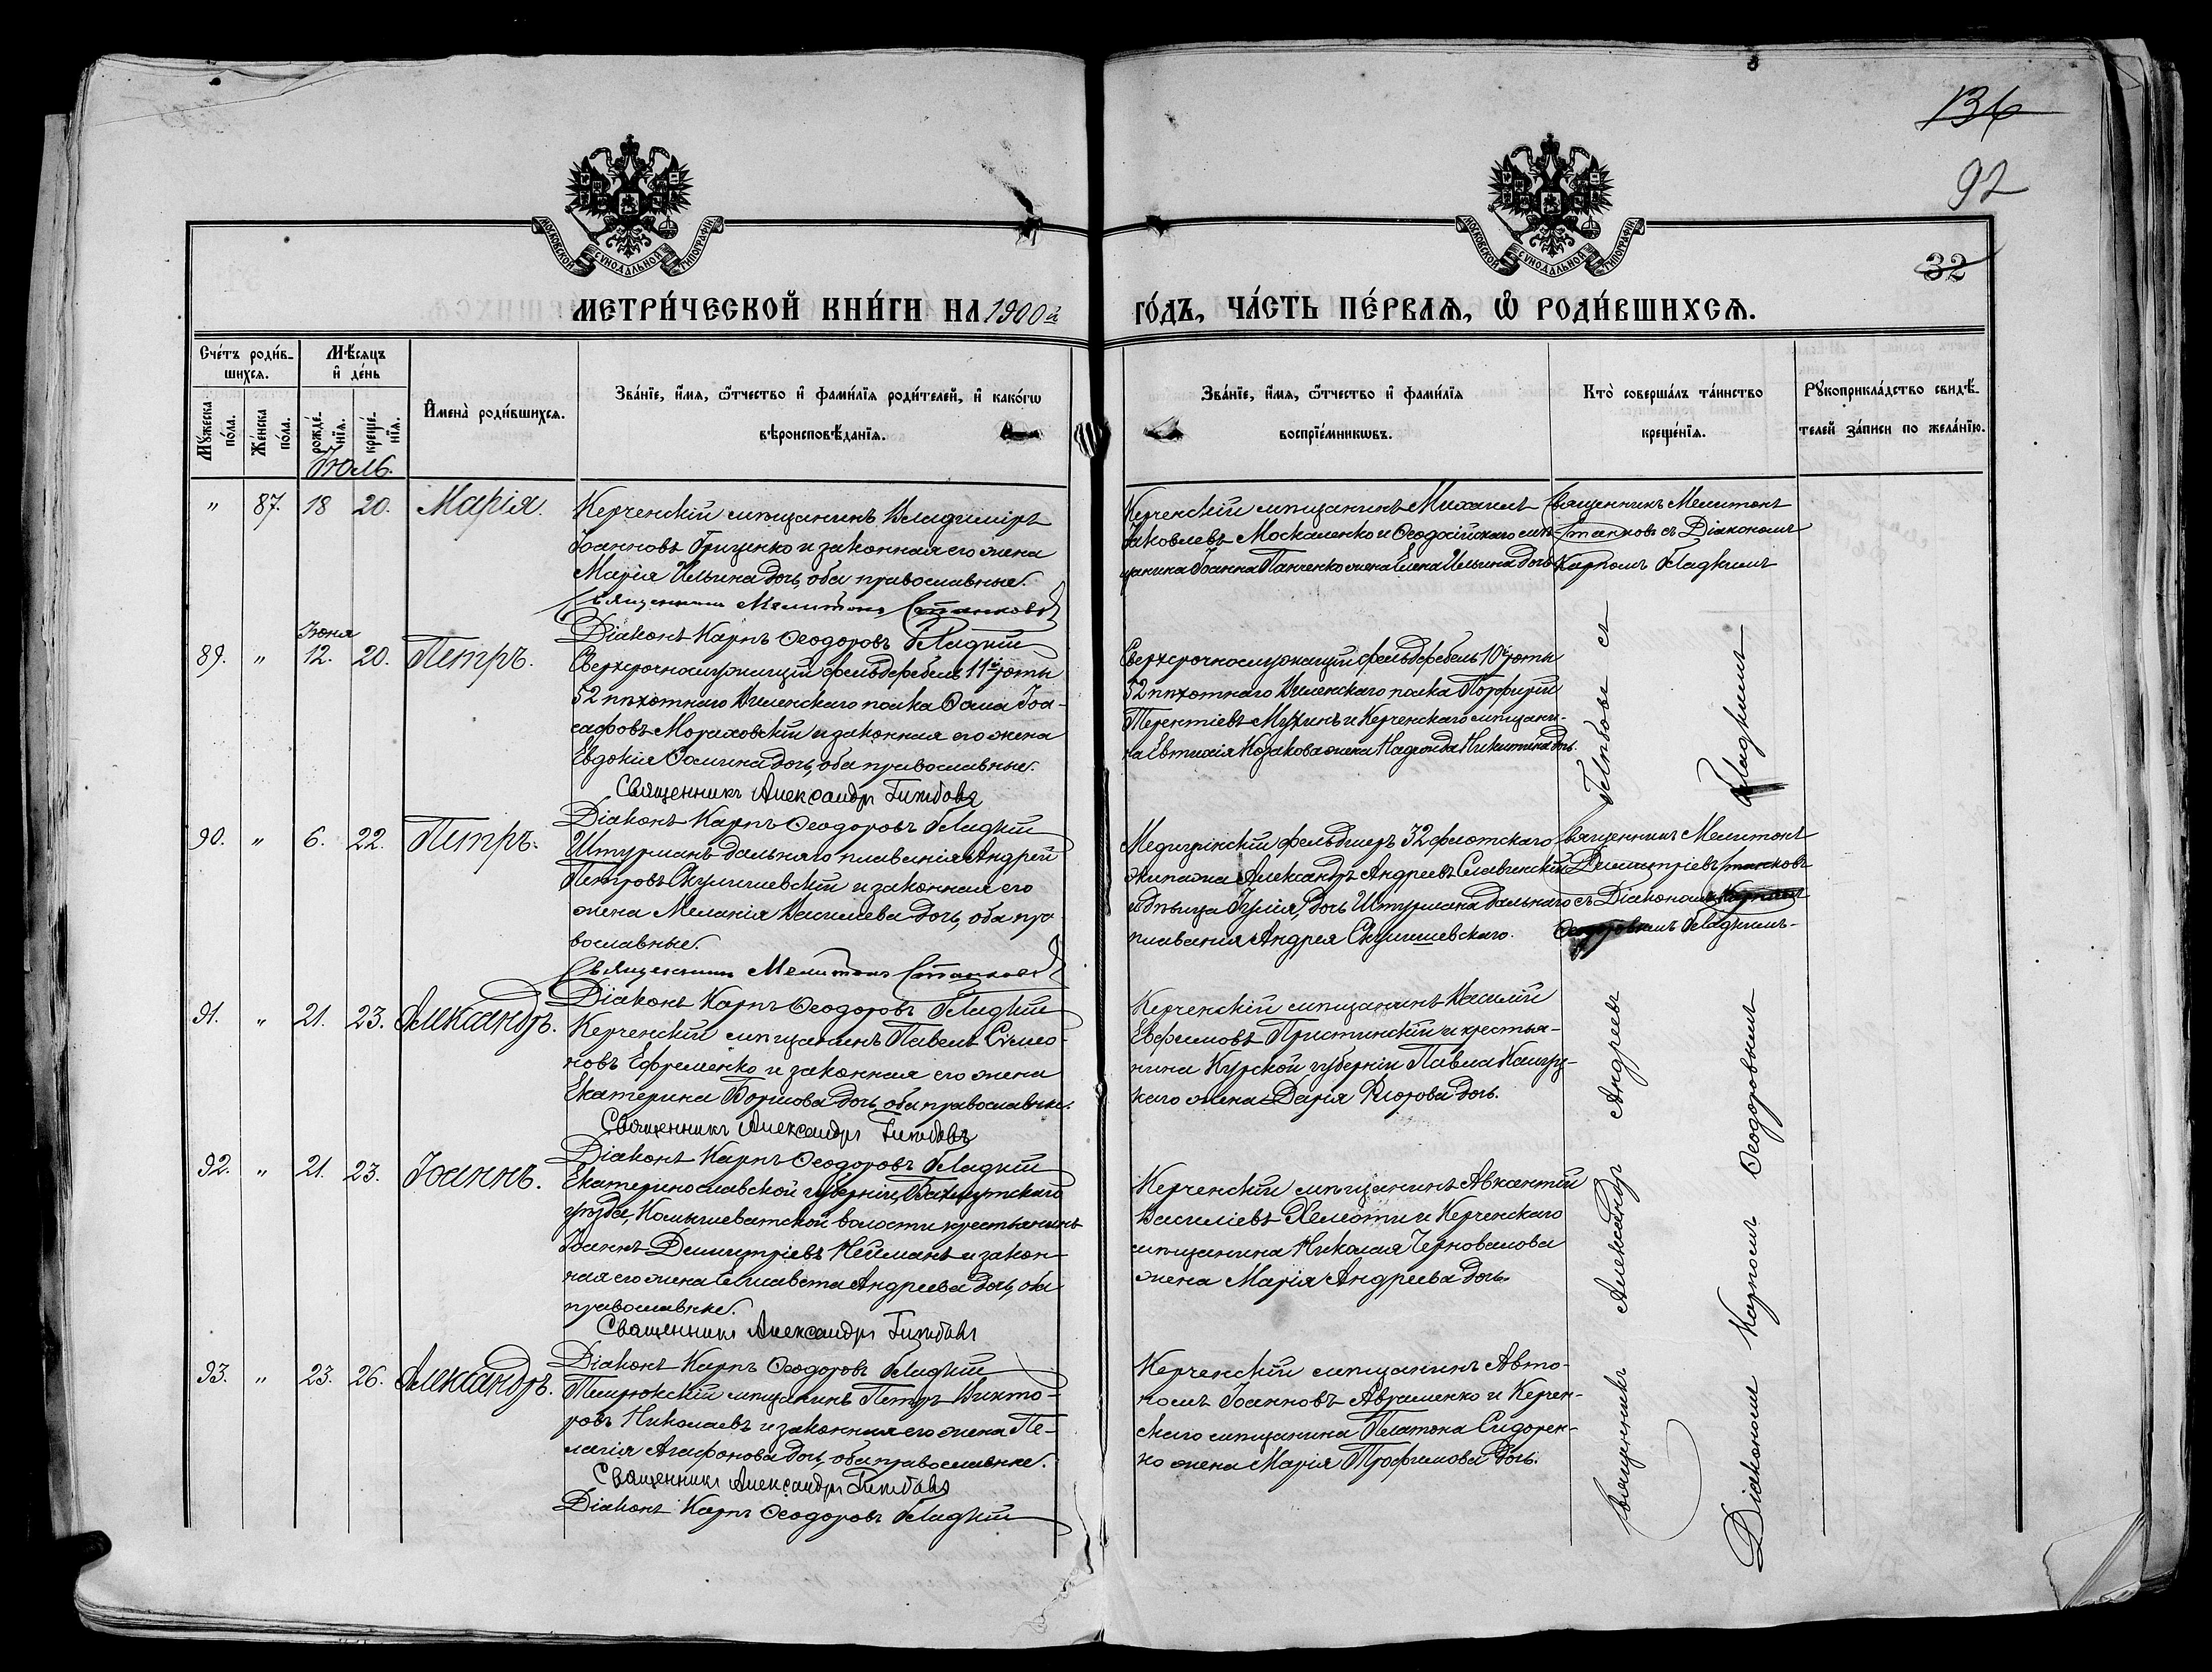 136
92
32
МОСКОВСКОЙ СѴНОДАЛЬНОЙ ТИПОГРАФІИ
МОСКОВСКОЙ СѴНОДАЛЬНОЙ ТИПОГРАФІИ
МЕТРИ́ЧЕСКОЙ КНИ́ГИ НА 1900й ГО́ДЪ, ЧА́СТЬ ПЕ́РВАѦ, Ѡ РОДИ́ВШИХСѦ.
Сче́тъ роди́в-
шихсѧ.
Мꙋ́жеска по́ла.
Же́нска по́ла.
Мѣ́сѧцъ
и҆ де́нь
рожде́нїѧ.
креще́нїѧ.
И҆мена̀ роди́вшихсѧ.
Зва́нїе, и҆́мѧ, ѻ҆́тчество и҆ фами́лїѧ роди́телей, и҆ како́гѡ
вѣроисповѣ́данїѧ.
Зва́нїе, и҆́мѧ, ѻ҆́тчество и҆ фами́лїѧ
воспрїе́мникѡвъ.
Кто̀ соверша́лъ та́инство
креще́нїѧ.
Рꙋкоприкла́дство свидѣ́-
телей за́писи по жела́нїю.
Іюль.
" 87. 18 20. Марія.
Керченскій мѣщанинъ Владиміръ
Іоанновъ Гриценко и законная его жена
Марія Ильина дочь, оба православные.
Священникъ Мелитонъ Станковъ
Діаконъ Карпъ Ѳеодоровъ Гладкій
Керченскій мѣщанинъ Михаилъ
Яковлевъ Москаленко и Ѳеодосійскаго мѣ-
щанина Іоанна Панченко жена Елена Ильина дочь
Священникъ Мелитонъ
Станковъ съ Діакономъ
Карпомъ Гладкимъ
Іюня
89. " 12. 20. Петръ.
Сверхсрочнослужащій фельдфебель 11й роты
52 пѣхотнаго Виленскаго полка Ѳома Іоа-
сафовъ Мораховскій и законная его жена
Евдокія Ѳомина дочь, оба православные.
Священникъ Александръ Гилѣбовъ
Діаконъ Карпъ Ѳеодоровъ Гладкій
Сверхсрочнослужащій фельдфебель 10й роты
52 пѣхотнаго Виленскаго полка Порфирій
Терентіевъ Мухинъ и Керченскаго мѣщани-
на Евтихія Козакова жена Надежда Никитина дочь.
90. " 6. 22. Петръ.
Штурманъ дальняго плаванія Андрей
Петровъ Скумшевскій и законная его
жена Меланія Васильева дочь, оба пра-
вославные.
Священникъ Мелитонъ Станковъ
Діаконъ Карпъ Ѳеодоровъ Гладкій
Медицинскій фельдшеръ 32 флотскаго
экипажа Александръ Андреевъ Славинскій
и дѣвица Іулія, дочь Штурмана дальняго
плаванія Андрея Скумшевскаго.
Священникъ Мелитонъ
Димитріевъ Станковъ
съ Діакономъ Карпомъ
Ѳеодоровымъ Гладкимъ-
91. " 21. 23. Александръ.
Керченскій мѣщанинъ Павелъ Симео-
новъ Ефременко и законная его жена
Екатерина Борисова дочь, оба православные.
Священникъ Александръ Гилѣбовъ
Діаконъ Карпъ Ѳеодоровъ Гладкій
Керченскій мѣщанинъ Василій
Евфимовъ Пристинскій и крестья-
нина Курской губерніи Павла
жена Дарія дочь.
92. " 21. 23. Іоаннъ.
Екатеринославской губерніи, Бахмутскаго
уѣзда, Комышеватской волости крестьянинъ
Іоаннъ Димитріевъ Нейманъ и закон-
ная его жена Елисавета Андреева дочь, оба
православные.
Священникъ Александръ Гилѣбовъ
Діаконъ Карпъ Ѳеодоровъ Гладкій
Керченскій мѣщанинъ Авксентій
Василіевъ и Керченскаго
мѣщанина Николая Черновалова
жена Марія Андреева дочь.
93. " 23. 26. Александръ.
Темрюкскій мѣщанинъ Петръ Викто-
ровъ Николаевъ и законная его жена Пе-
лагія Агафонова дочь, оба православные.
Священникъ Александръ Гилѣбовъ
Діаконъ Карпъ Ѳеодоровъ Гладкій
Керченскій мѣщанинъ Авто-
номъ Іоанновъ Авраменко и Керчен-
скаго мѣщанина Платона Сидорен-
ко жена Марія Трофимова дочь.
Священникъ Александръ Андреевъ Гилѣбовъ съ
Діакономъ Карпомъ Ѳеодоровымъ Гладкимъ